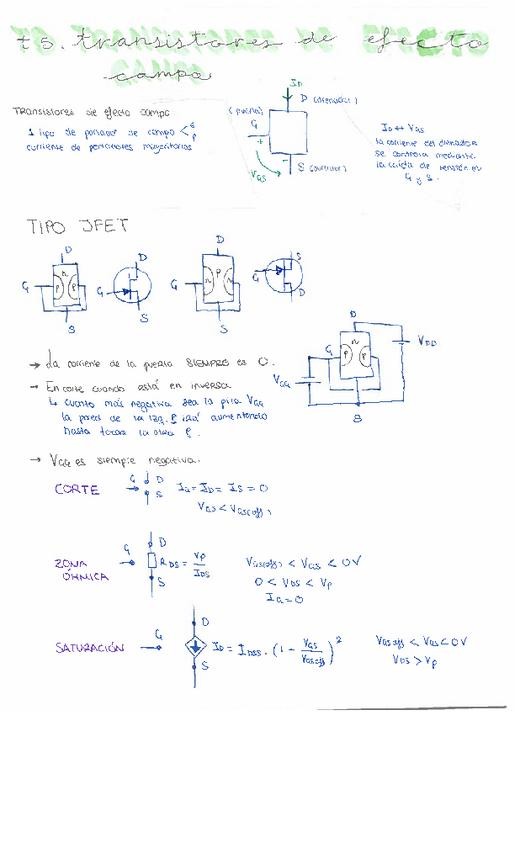 t5. transistores de efecto
campo
TRANSISTORES de efecto campo
1 tipo de portador de campo < e p
corriente de portadores mayoritarios
ID
D (drenador)
(puerta)
G
+
-
S (surtidor)
VGS
ID ↔ VGS
la corriente del drenador
se controla mediante
la caída de tensión en
G y S.
TIPO JFET
D
G
n
P P
S
D
G
S
D
G
N P N
S
S
G
D
→ La corriente de la puerta SIEMPRE es 0.
→ En corte cuando está en inversa
↳ cuanto más negativa sea la pila VGG
la pared de la izq. P irá aumentando
hasta tocar la otra P.
D
VDD
G
n
P P
VGG
S
→ VGG es siempre negativa.
CORTE
G
D
S
IG = ID = IS = 0
VGS < VGS(off)
ZONA
ÓHMICA
G
D
S
RDS = VP / IDS
VGS(off) < VGS < 0V
0 < VDS < VP
IG = 0
SATURACIÓN
G
D
S
ID = IDSS · (1 - VGS / VGSoff)²
VGSoff < VGS < 0V
VDS > VP